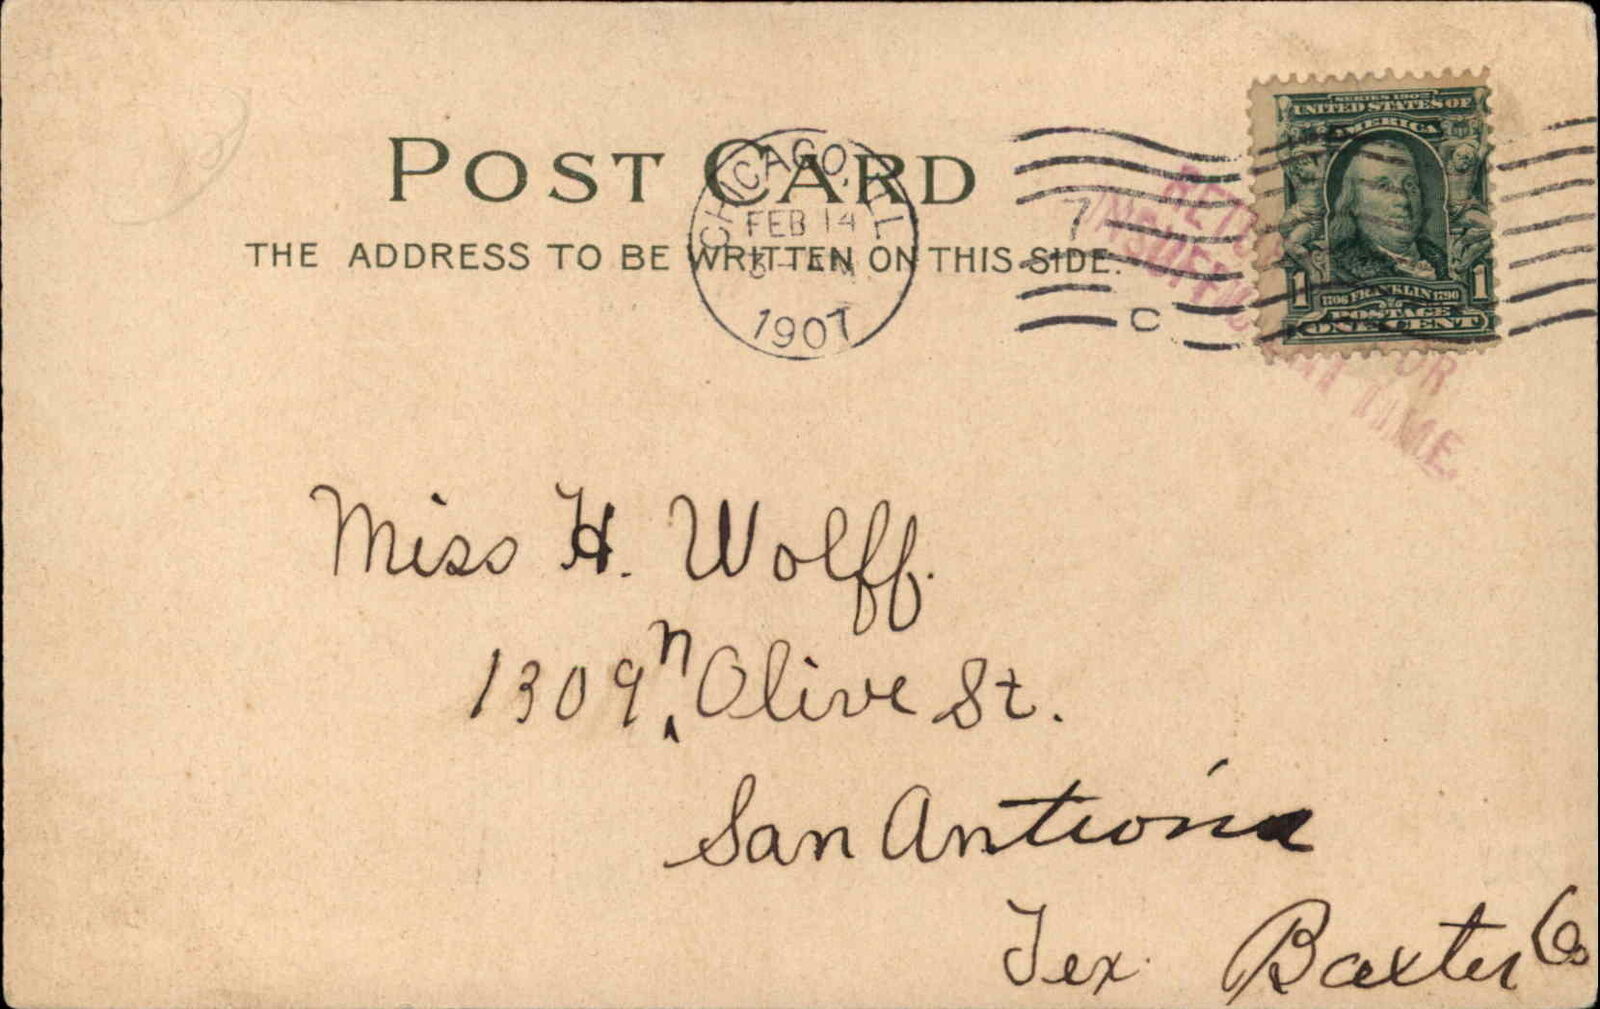 POST CARD
THE ADDRESS TO BE WRITTEN ON THIS SIDE.
CHICAGO, ILL
FEB 14
3 - AM
1907
7
C
SERIES 1902
UNITED STATES OF
AMERICA
1 1
1706 FRANKLIN 1790
POSTAGE
ONE CENT
FOR
TIME
Miss H. Wolff.
1309 n Olive St.
San Antionia
Tex. Baxter Co